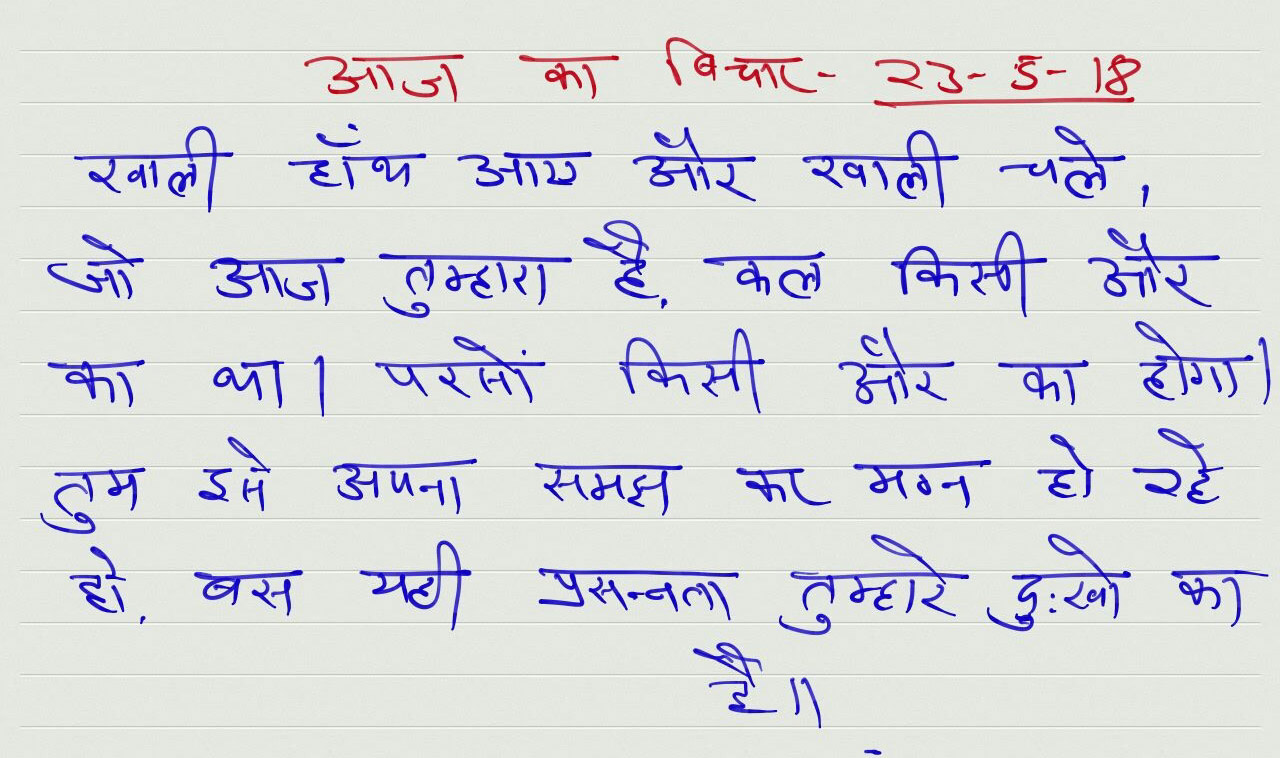 आज का विचार- 23-5-18
खाली हाँथ आए और खाली चले,
जो आज तुम्हारा है, कल किसी और
का था। परसों किसी और का होगा।
तुम इसे अपना समझ कर मग्न हो रहे
हो, बस यही प्रसन्नता तुम्हारे दु:खो का
है॥